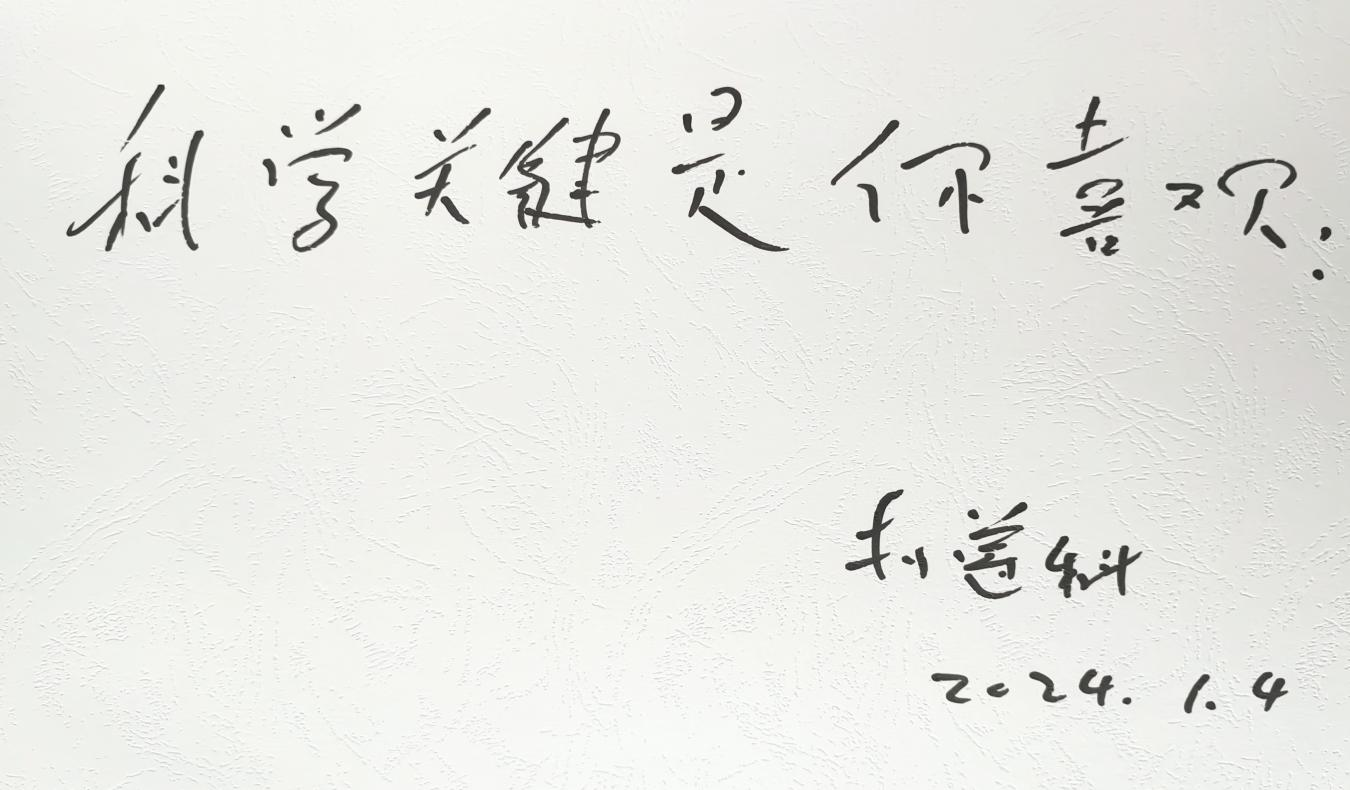 科学关键是你喜欢:
2024.1.4